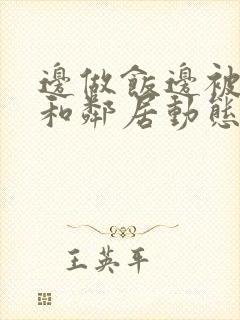 邊做飯邊被
和鄰居動態
王英平